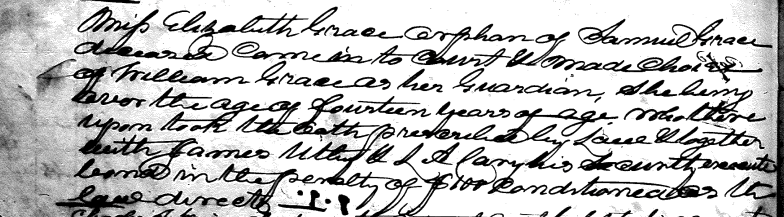 Miss Elizabeth Grace orphan of Samuel Grace
deceased Came in to Court & made choice
of William Grace as her Guardian, She being
over the age of fourteen years of age, who there
upon took the oath prescribed by Law & together
with James Utley & L A Cary his Security execute
bond in the penalty of $100 Conditioned as the
law directs